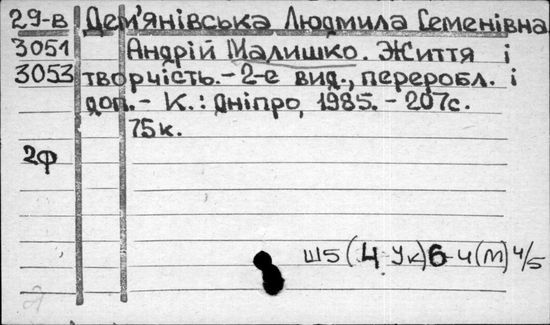 29-в Дем'янівська Людмила Семенівна
3051 Андрій Малишко. Життя і
3053 творчість.- 2-е вид., переробл. і
доп.- К.: Дніпро, 1985. - 207с.
75к.
2ф
Ш5(4 Ук)6-4(М)4/5